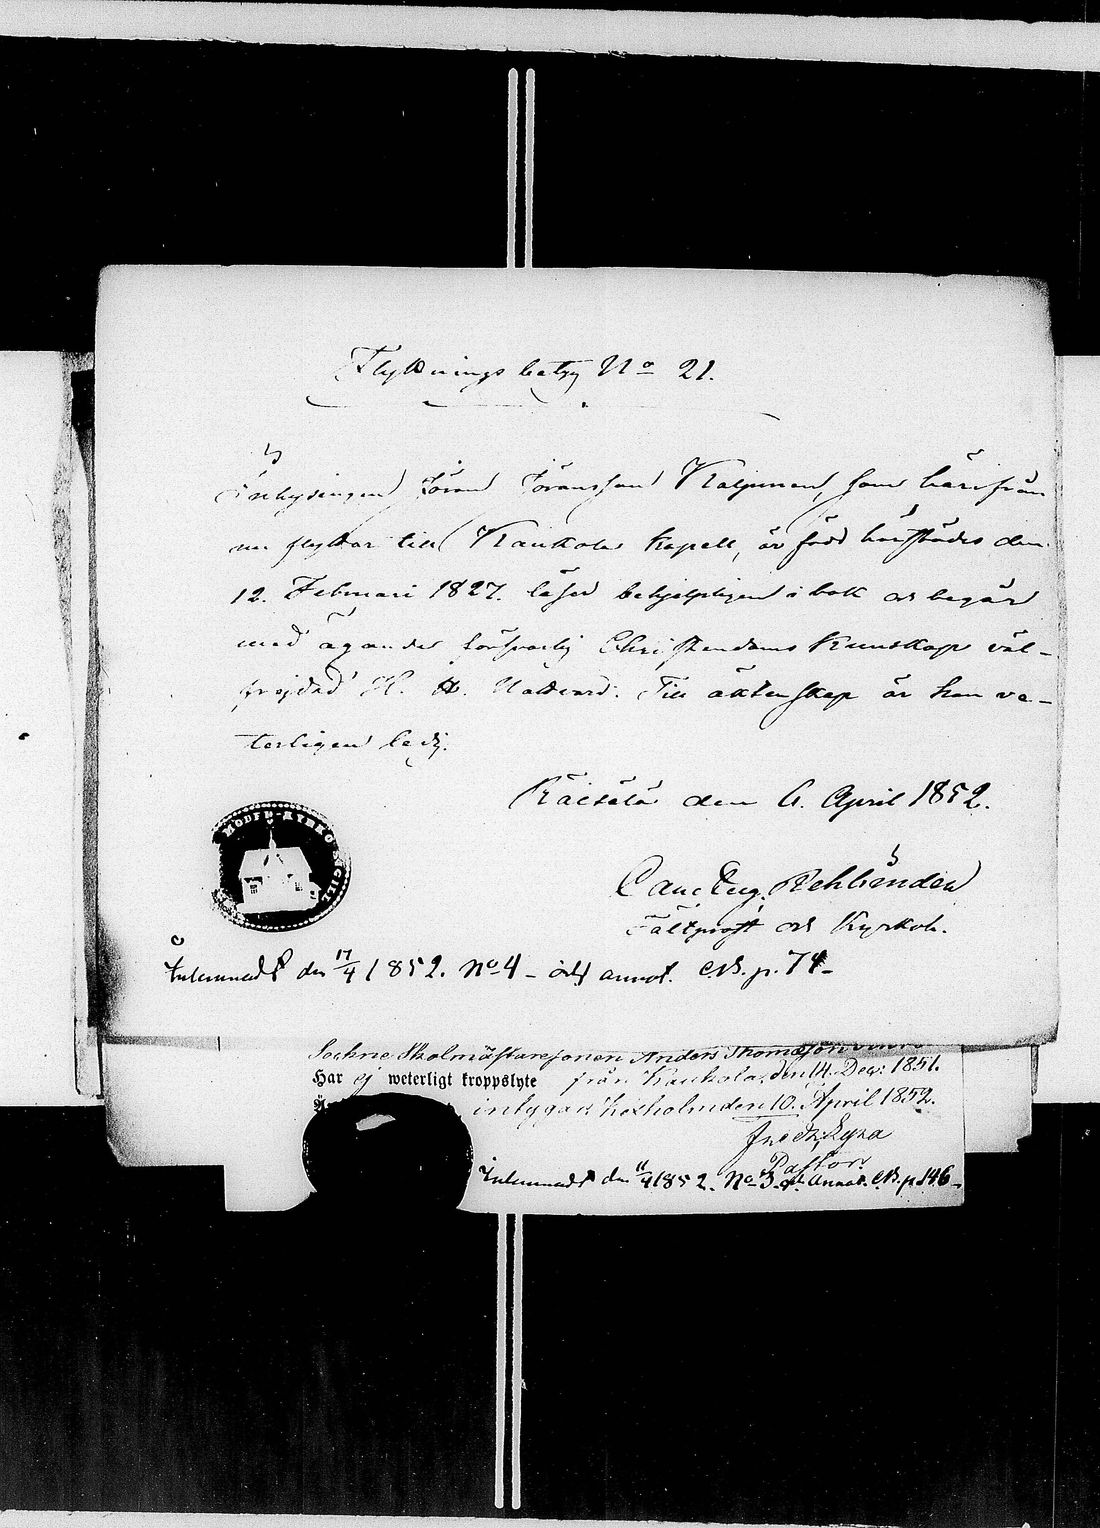 Flyttnings betyg No 21.
Inhysingen Jöran Jöransson Kaljunen, som härifrån
nu flyttar till Kaukola Kapell, är född härstädes den
12. Februari 1827. läser behjelpligen i bok och begår
med ägande försvarlig Christendoms Kunskap väl-
frejdad H. H. Nattvard. Till äktenskap är han ve-
terligen ledig.
Räisälä den 6. April 1852.
Carl Eug.
Fältprost och Kyrkoh.
MODER-KYRKO SIGILL
Inlemnadt den 17/4 1852. No 4 - och annot. C.B. p. 74 -
Sockne Skolmästaresonen Anders Thomasson
Har ej weterligt kroppslyte från Kaukola, den 14. Dec: 1851.
inbyggare Kexholm den 10. April 1852.
Pastor.
Inlemnadt den 11/4 1852. No 3. och Annot. C.B. p. 146 -